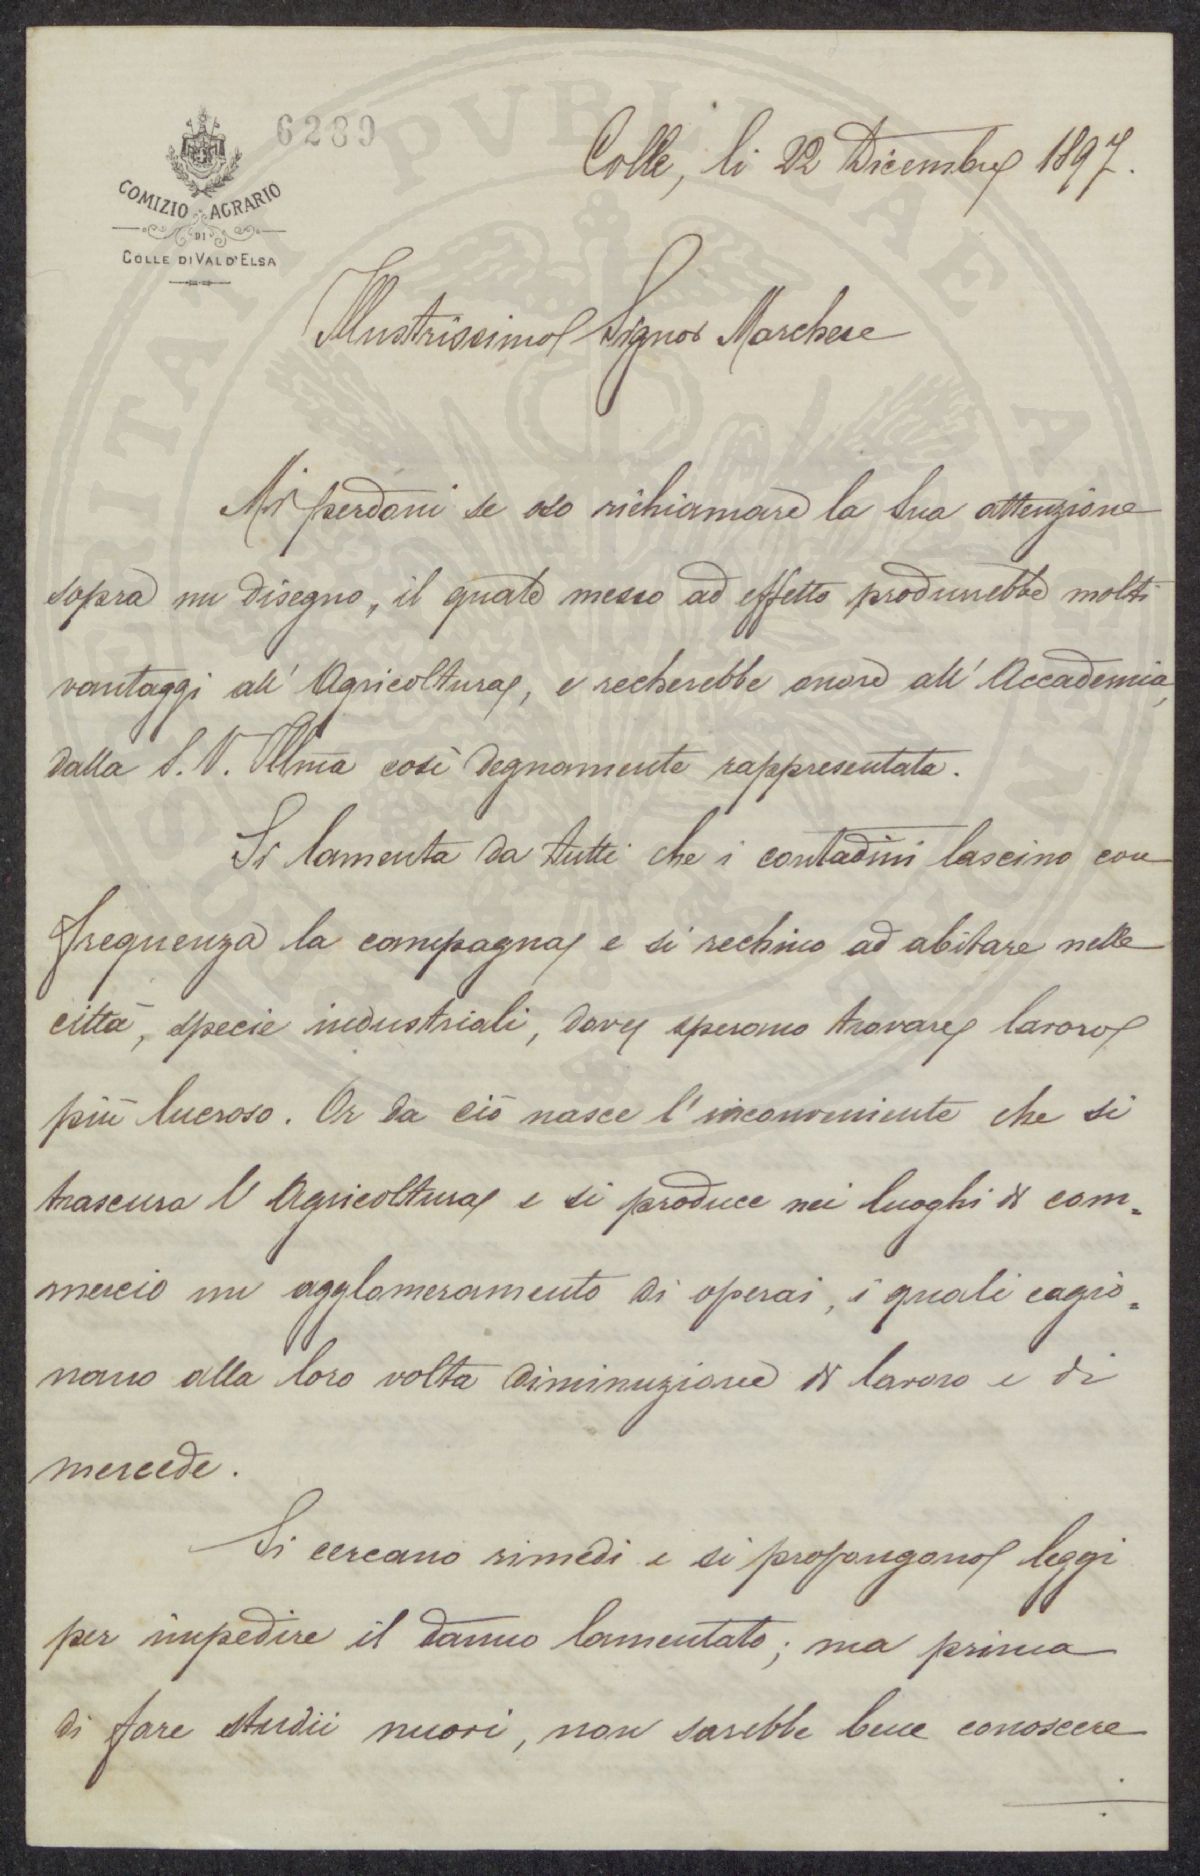 6289
COMIZIO AGRARIO
DI
COLLE DI VAL D'ELSA
Colle, li 22 Dicembre 1897.
Illustrissimo Signor Marchese
Mi perdoni se oso richiamare la Sua attenzione
sopra un disegno, il quale messo ad effetto produrrebbe molti
vantaggi all' Agricoltura, e recherebbe onore all' Accademia,
dalla S. V. Illma così degnamente rappresentata.
Si lamenta da tutti che i contadini lascino con
frequenza la campagna e si rechino ad abitare nelle
città, specie industriali, dove sperano trovare lavoro
più lucroso. Or da ciò nasce l'inconveniente che si
trascura l'Agricoltura e si produce nei luoghi di com=
mercio un agglomeramento di operai, i quali cagio=
nano alla loro volta diminuzione di lavoro e di
mercede.
Si cercano rimedi e si propongono leggi
per impedire il danno lamentato; ma prima
di fare studii nuovi, non sarebbe bene conoscere